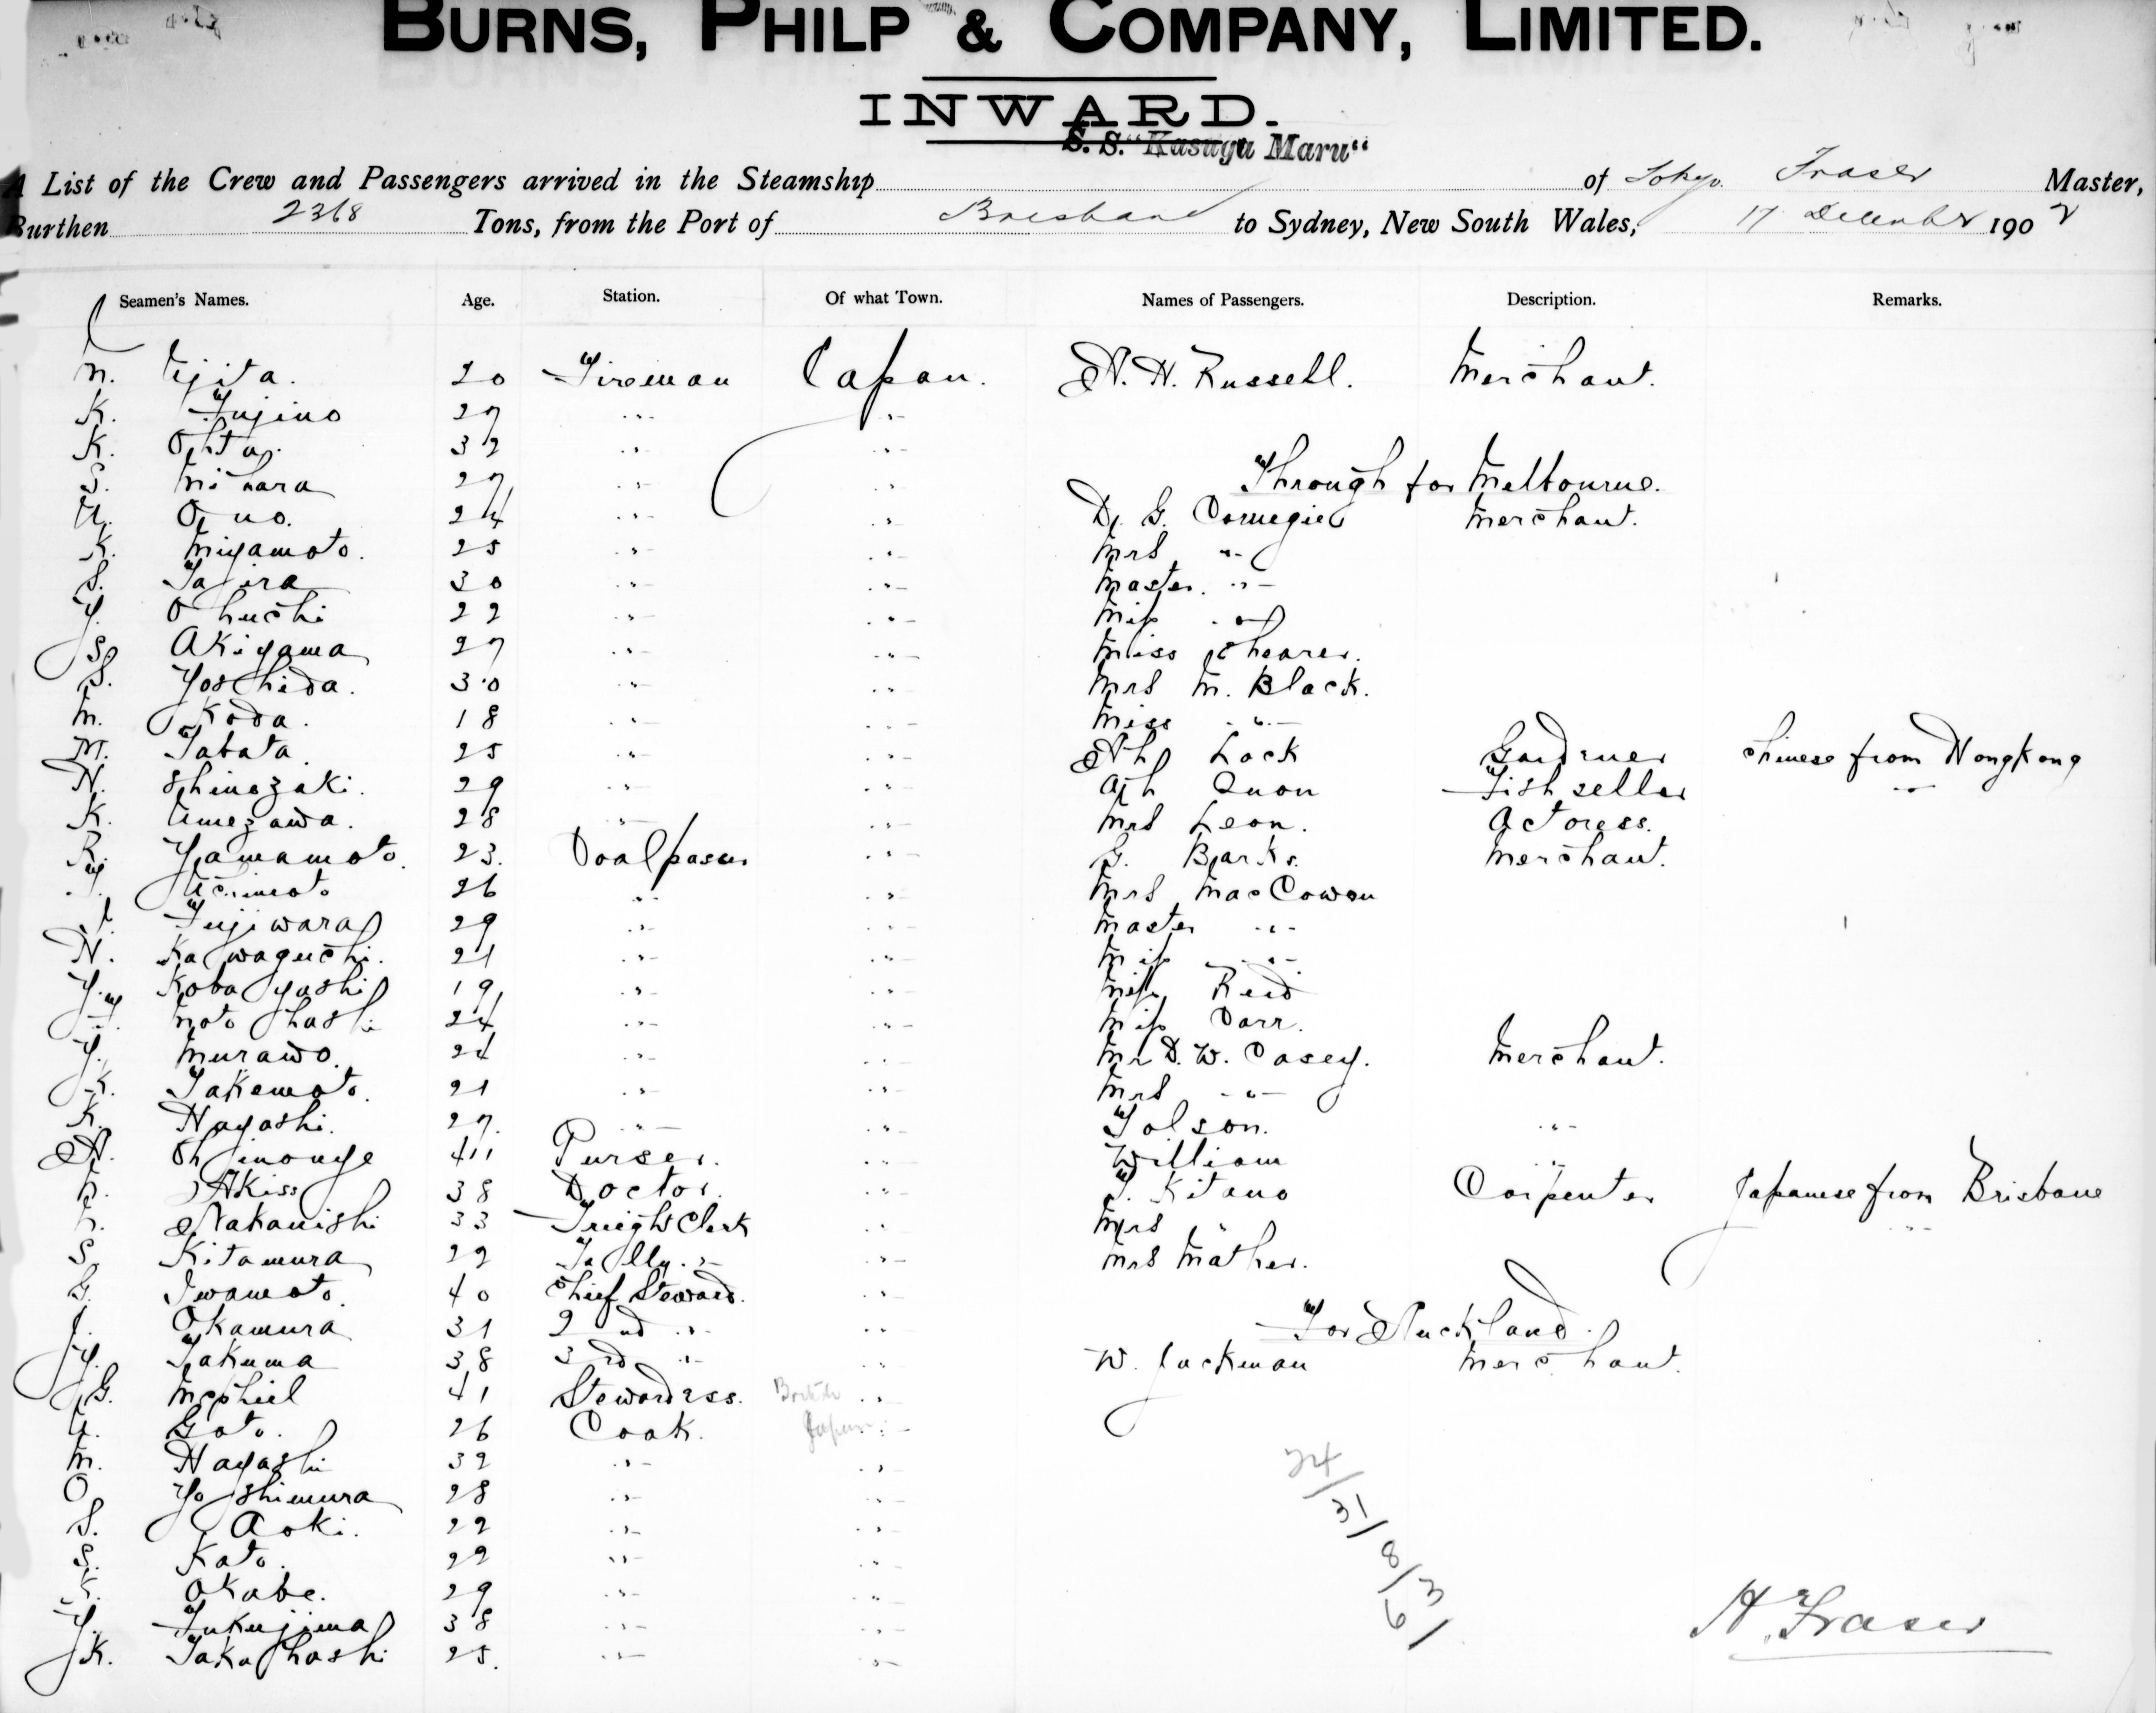 BURNS, PHILP & COMPANY, LIMITED.
INWARD.
S. S. "Kasuga Maru"
A List of the Crew and Passengers arrived in the Steamship of Tokyo Fraser Master,
Burthen 2368 Tons, from the Port of Brisbane to Sydney, New South Wales, 17 December 1902
Seamen's Names. Age. Station. Of what Town. Names of Passengers. Description. Remarks.
N. Ujita. 20 Fireman Japan. A. H. Russell. Merchant.
K. Fujino 27 " "
K. Ohta. 32 " "
S. Mihara 27 " " Through for Melbourne.
U. Ono. 24 " " D. G. Carnegie Merchant.
K. Miyamoto. 25 " " Mrs "
S. Tajira 30 " " Master "
Y. Ohuchi 22 " " Miss "
S. Akiyama 27 " " Miss Shearer.
S. Yoshida. 30 " " Mrs M. Black.
M. Koda. 18 " " Miss "
M. Tabata 25 " " Ah Lock Gardner Chinese from Hongkong
N. Shinozaki. 29 " " Ah Quon Fish seller "
K. Umezawa. 28 " " Mrs Leon. Actoress.
R. Yamamoto. 23. Coalpasser " G. Barks. Merchant.
T. Uchimoto 26 " " Mrs MacCowen
Fujiwara 29 " " Master "
N. Kawaguchi. 21 " " Miss "
Y. Kobayashi 19 " " Miss Reid
T. Motohashi 24 " " Miss Carr.
Y. Murawo. 24 " " Mr D. W. Casey. Merchant.
K. Takemoto. 21 " " Mrs "
K. Hayashi. 27. " " Tolson. "
A. Shinouye 41 Purser. " William "
Akiss 38 Doctor. " T. Kitano Carpenter Japanese from Brisbane
Nakanishi 33 Freight Clerk " Mrs " "
S. Kitamura 22 Tally " " Mrs Mather.
G. Iwamoto. 40 Chief Steward. "
J. Okamura 31 2nd " " For Auckland.
Y. Takuma 38 3rd " " W. Jackman Merchant.
G. McPhiel 41 Stewardess. British "
U. Goto. 26 Cook. Japan "
M. Hayashi 32 " "
O. Yoshimura 28 " "
S. Aoki. 22 " "
S. Kato. 22 " "
K. Okabe. 29 " "
Y. Fukujima 38 " "
K. Takahashi 25. " "
24/31/8/3
61
H. Fraser